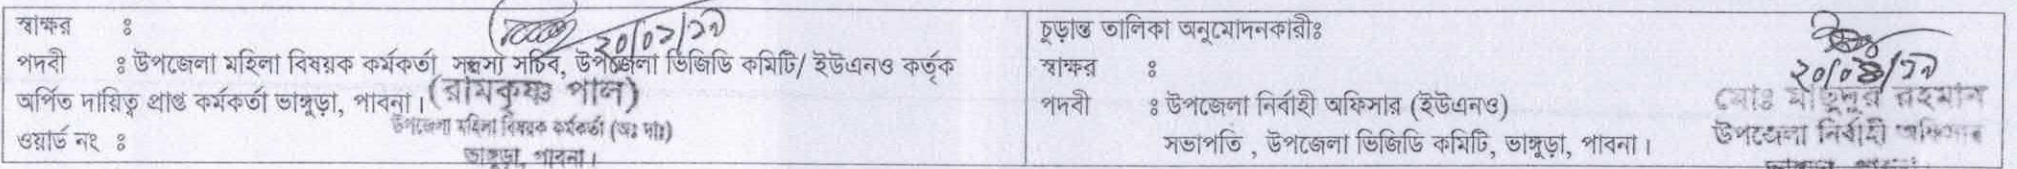 স্বাক্ষর ঃ
২০/০১/১৯
পদবী ঃ উপজেলা মহিলা বিষয়ক কর্মকর্তা সদস্য সচিব, উপজেলা ভিজিডি কমিটি/ ইউএনও কর্তৃক
অর্পিত দায়িত্ব প্রাপ্ত কর্মকর্তা ভাঙ্গুড়া, পাবনা।
(রামকৃষ্ণ পাল)
উপজেলা মহিলা বিষয়ক কর্মকর্তা (অঃ দাঃ)
ভাঙ্গুড়া, পাবনা।
ওয়ার্ড নং ঃ
চুড়ান্ত তালিকা অনুমোদনকারীঃ
স্বাক্ষর ঃ
পদবী ঃ উপজেলা নির্বাহী অফিসার (ইউএনও)
সভাপতি , উপজেলা ভিজিডি কমিটি, ভাঙ্গুড়া, পাবনা।
মোঃ মাছুদুর রহমান
উপজেলা নির্বাহী অফিসার